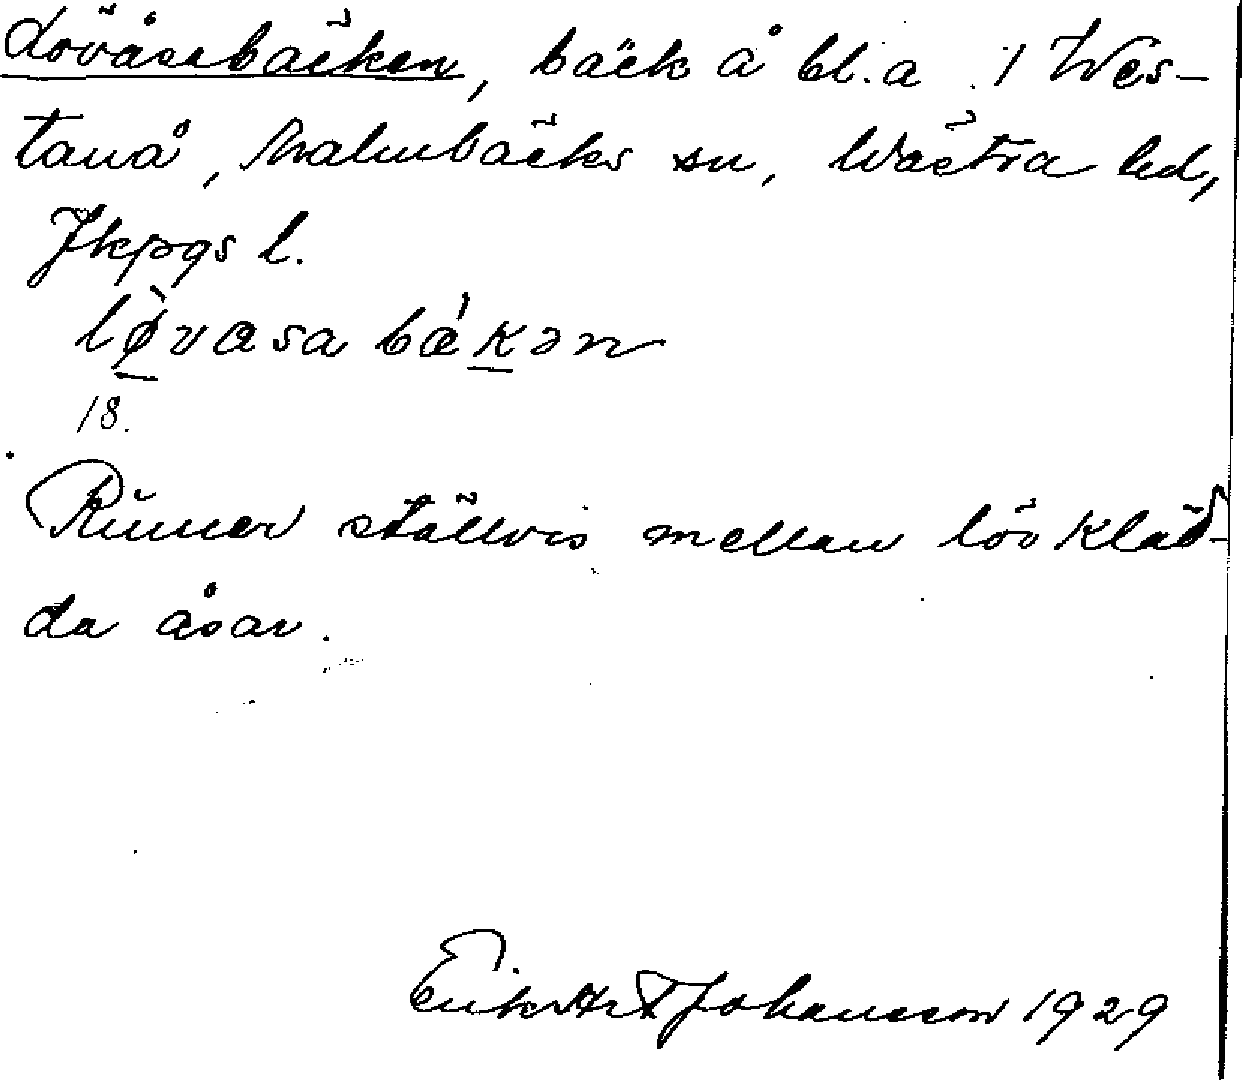 Lövåsabäcken, bäck å bl.a. i Wes-
tanå, Malmbäcks sn, Wästra hd,
Jkpgs l.
lǿvasa bǽkən
18.
Rinner ställvis mellan lövkläd-
da åsar.
Johansson 1929